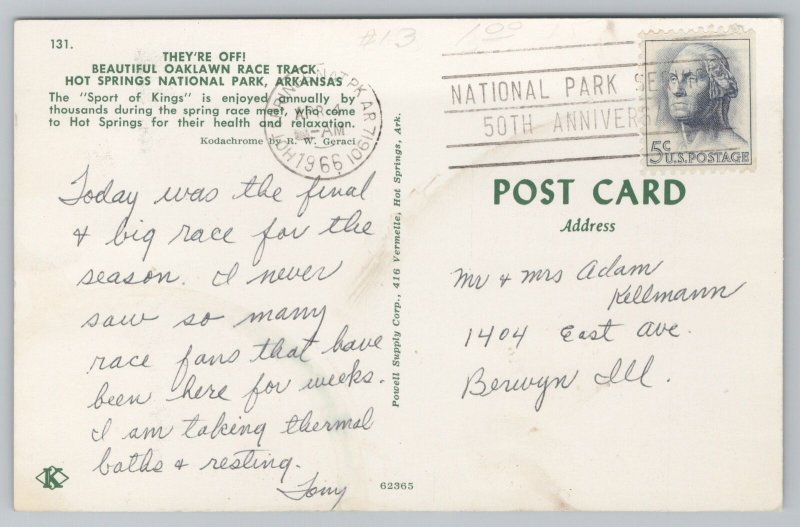 131.
THEY'RE OFF!
BEAUTIFUL OAKLAWN RACE TRACK
HOT SPRINGS NATIONAL PARK, ARKANSAS
The "Sport of Kings" is enjoyed annually by
thousands during the spring race meet, who come
to Hot Springs for their health and relaxation.
Kodachrome by R. W. Geraci
Today was the final
& big race for the
season. I never
saw so many
race fans that have
been here for weeks.
I am taking thermal
baths & resting.
Tony
Powell Supply Corp., 416 Vermelle, Hot Springs, Ark.
K
62365
#13
1.00
HOT SPRINGS NAT. PK. AR 71901
APR 4
AM
1966
NATIONAL PARK SE
50TH ANNIVERS
5c U.S. POSTAGE
POST CARD
Address
Mr & Mrs Adam
Kellmann
1404 East Ave.
Berwyn Ill.